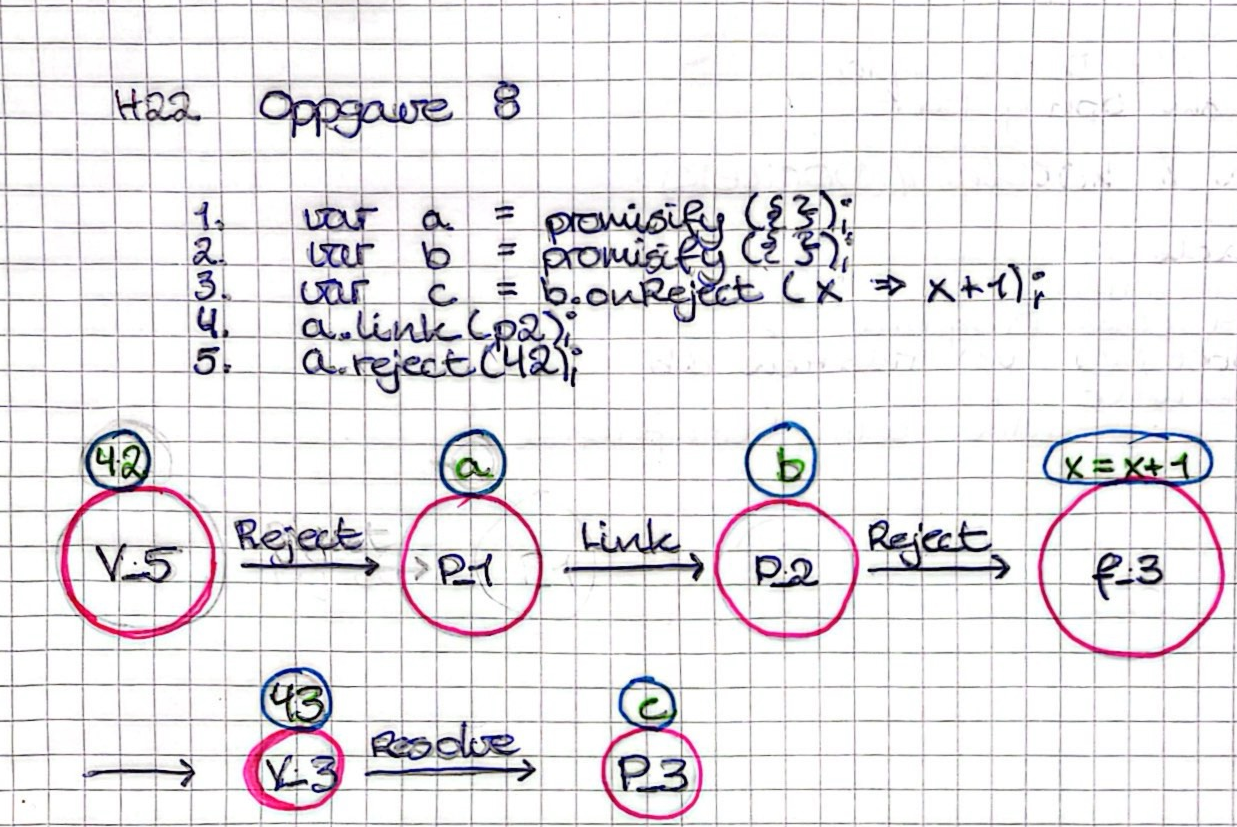 H22 Oppgave 8
1. var a = promisify ({ });
2. var b = promisify ({ });
3. var c = b.onReject (x => x+1);
4. a.link(p2);
5. a.reject(42);
42 a b x = x+1
V_5 Reject P_1 Link P_2 Reject f_3
43 c
V_3 Resolve P_3